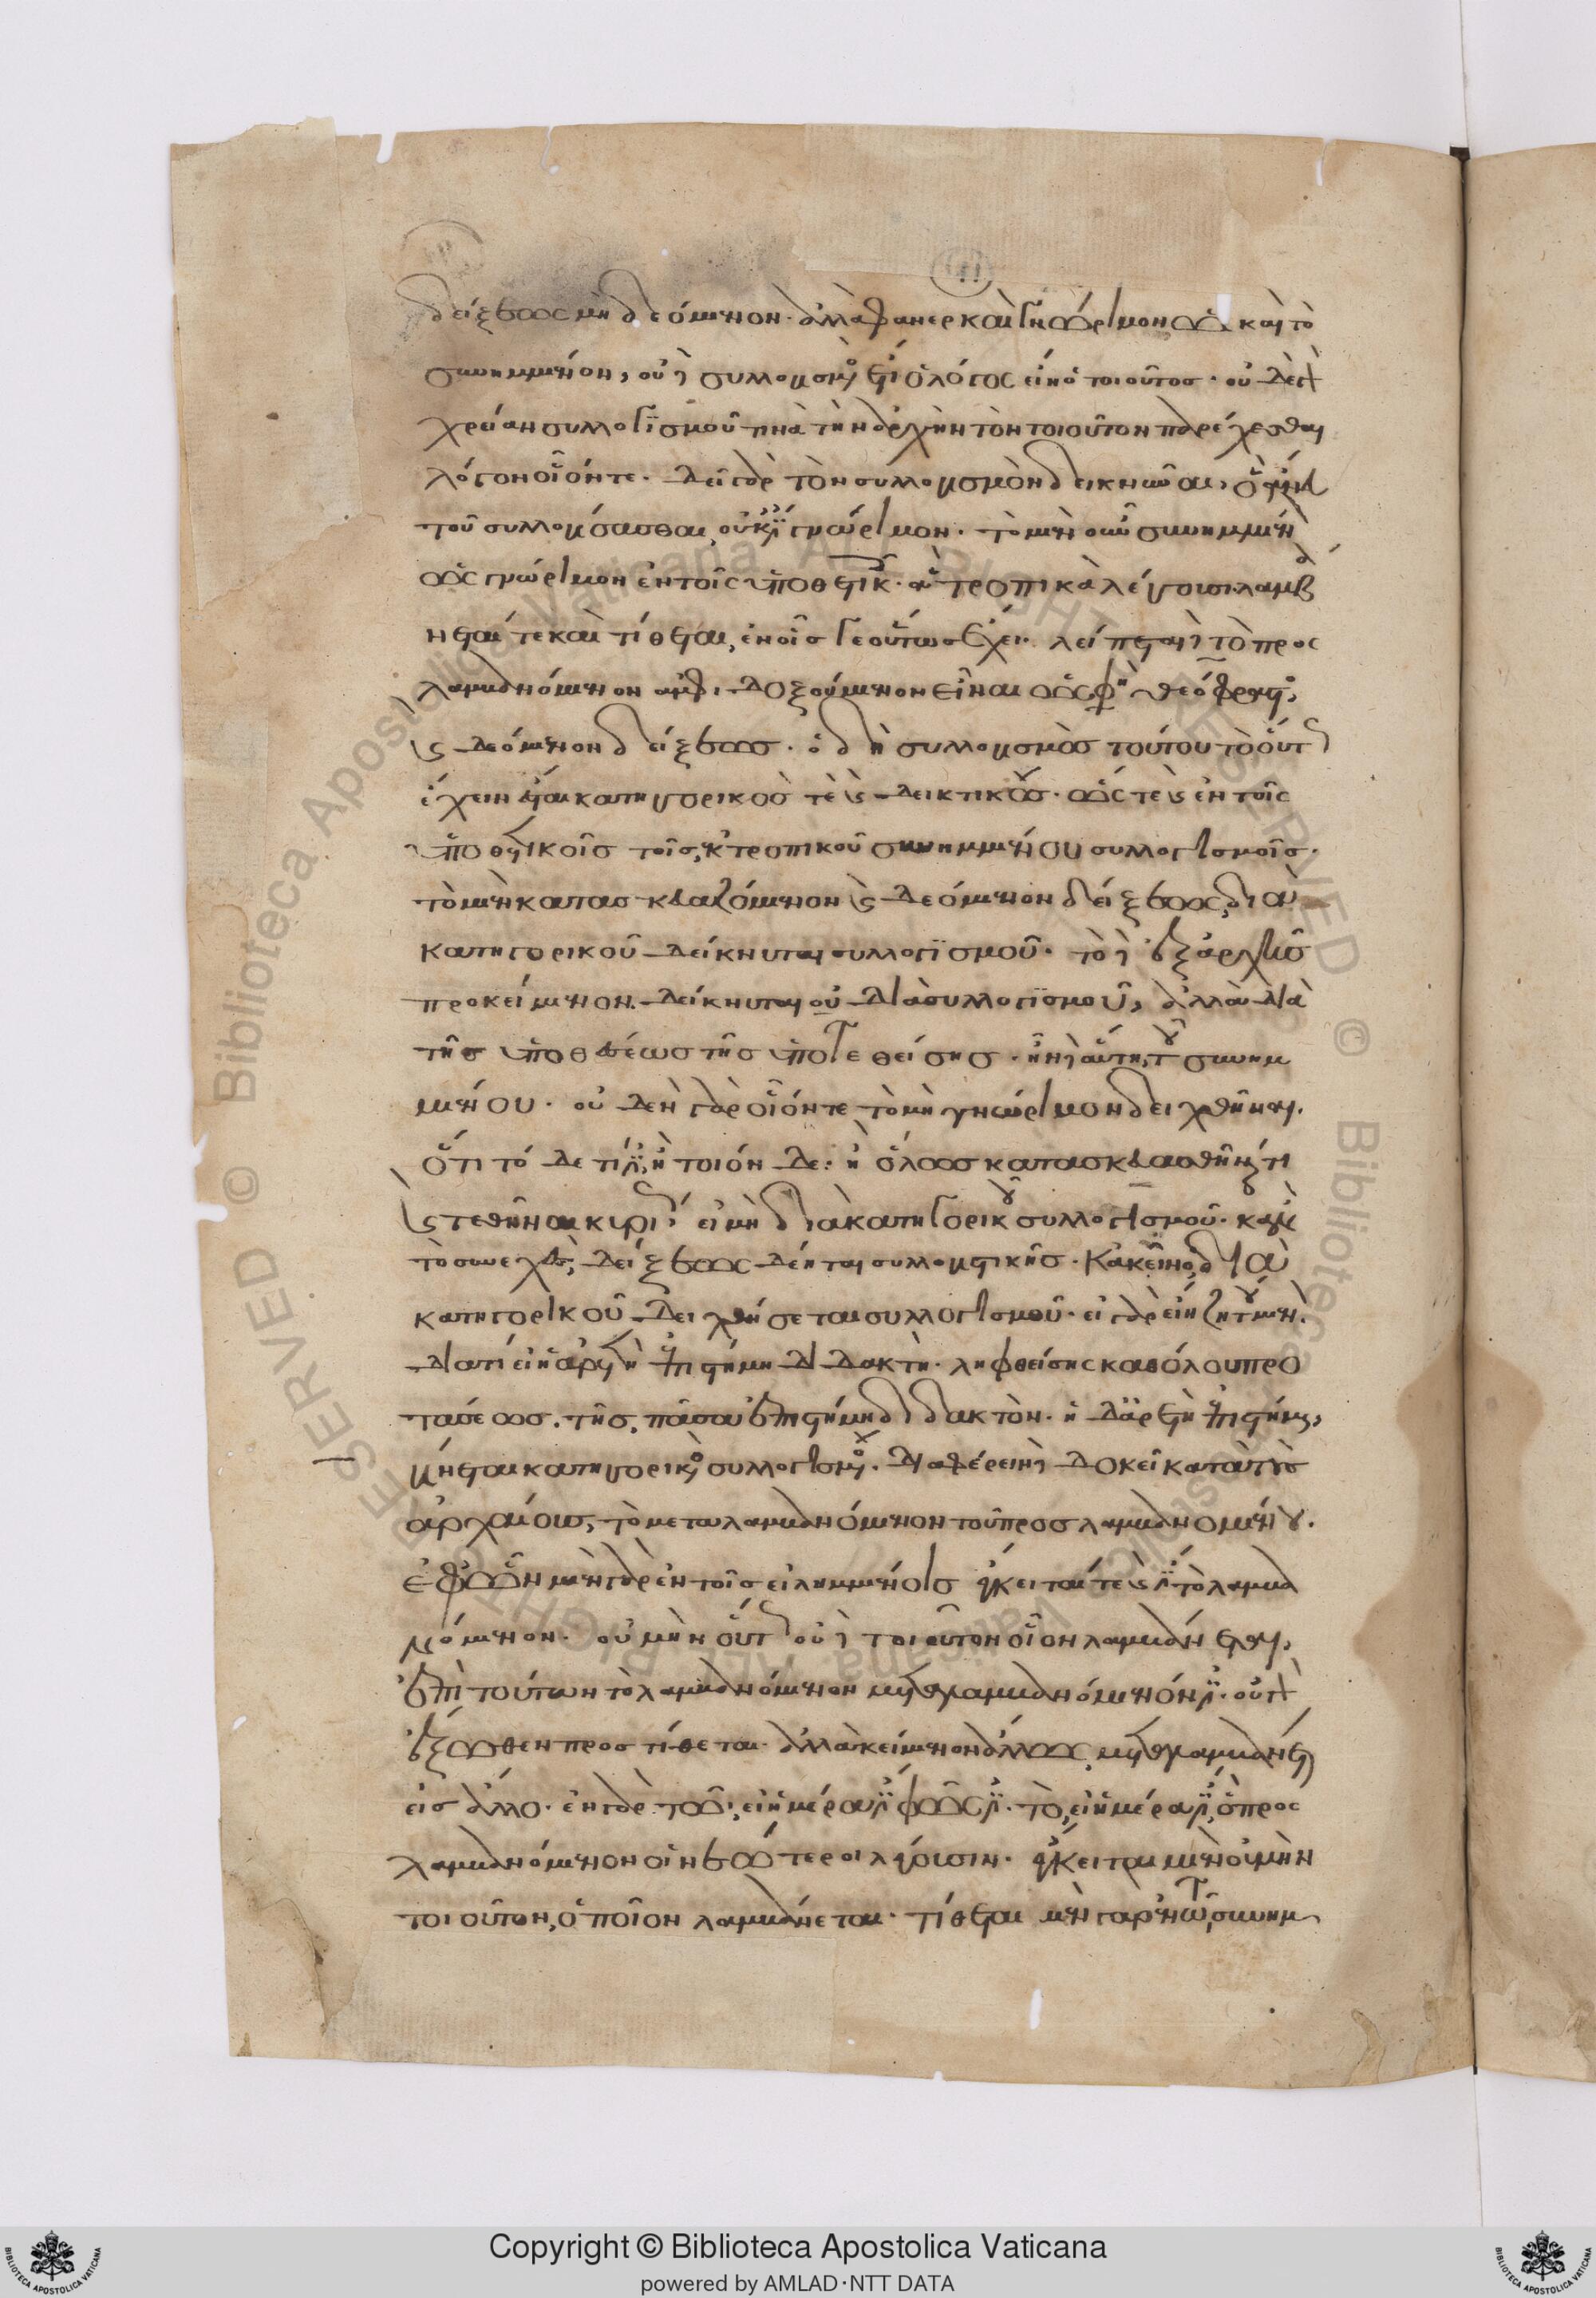 δείξεως μὴ δεόμενον· ἀλλὰ φανερ καὶ γνώριμον ὡς καὶ τὸ
συνημμένον, οὐδὲ συλλογισμὸς ἔτι ὁ λόγος εἴη ὁ τοιοῦτος· οὐδὲ
χρείαν συλλογϊσμοῦ τινὰ τὴν ἀρχὴν τὸν τοιοῦτον παρέχεσθαι
λόγον οἷόντε· δεῖ γὰρ τὸν συλλογισμὸν δεικνύναι, ὃ ἄνευ
τοῦ συλλογίσασθαι, οὐκ ἔστι γνώριμον· τὸ μὲν οὖν συνημμέν
ὡς γνώριμον ἐν τοῖς ὑποθετικ· οὓς τροπικὰ λέγουσι λαμβά
νεταί τε καὶ τίθεται, ἐν οἷς γε οὕτως ἔχει· λείπεται δὲ τὸ προς
λαμβανόμενον ἀμφιδοξούμενον εἶναι ὥς φη θεόφραστος,
καὶ δεόμενον δείξεως· ὁ δὴ συλλογισμὸς τούτου τὸ οὕτως
ἔχειν ἔσται κατηγορικός τε καὶ δεικτικός· ὥς τε καὶ ἐν τοῖς
ὑποθετικοῖς τοῖς ἐκ τροπικοῦ συνημμένου συλλογισμοῖς·
τὸ μὲν κατασκευαζόμενον καὶ δεόμενον δείξεως, διὰ
κατηγορικοῦ δείκνυται συλλογϊσμοῦ· τὸ δὲ ἐξ ἀρχῆς
προκείμενον. δείκνυται οὐ διὰ συλλογϊσμοῦ, ἀλλὰ διὰ
τῆς ὑποθέσεως τῆς ὑποτεθείσης· ἦν δὲ αὕτη, τοῦ συνημ
μένου· οὐδὲν γὰρ οἷόντε τὸ μὴ γνώριμον δειχθῆναι.
ὅτι τόδε τί ἐστιν, ἢ τοιόνδε· ἢ ὅλως κατασκευασθῆναί τι
καὶ τεθῆναι κυρι εἰ μὴ διὰ κατηγορικοῦ συλλογισμοῦ· κἂν
τὸ συνεχὲς, δείξεως δέηται συλλογιστικῆς· κἀκεῖνο, διὰ
κατηγορικοῦ δειχθήσεται συλλογισμοῦ· εἰ γὰρ εἴη ζητούμεν
διατί εἰ ἡ ἀρετὴ ἐπιστήμη διδακτὴ· ληφθείσης καθόλου προ
τασεως. τῆς, πᾶσα ἐπιστήμη διδακτὸν· ἡ δὲ ἀρετὴ ἐπιστήμη,
γίνεται κατηγορικὸς συλλογισμός· διαφέρειν δὲ δοκεῖ κατὰ τοὺς
ἀρχαίους, τὸ μεταλαμβανόμενον τοῦ προσλαμβανομένου·
ἐφ’ ὧν μὲν γὰρ ἐν τοῖς εἰλημμένοις ἔγκειταί τε καὶ ἔστι τὸ λαμβα
νόμενον· οὐ μὴν οὕτως οὐδὲ τοιοῦτον οἷον λαμβάνεται,
ἐπὶ τούτων τὸ λαμβανόμενον μεταλαμβανόμενόν ἐστιν· οὐ γὰρ
ἔξωθεν προστίθεται· ἀλλὰ κείμενον ἄλλως, μεταλαμβάνεται
εἰς ἄλλο· ἐν γὰρ τῶ, εἰ ἡμέρα ἐστὶ φῶς ἐστι· τὸ, εἰ ἡμέρα ἐστίν, ὃ προς
λαμβανόμενον οἱ νεώτεροι λέγουσιν· ἔγκειται μὲν οὐ μὴν
τοιοῦτον, ὁποῖον λαμβάνεται· τίθεται μὲν γαρ ἐν τῶ συνημ
Copyright © Biblioteca Apostolica Vaticana
powered by AMLAD·NTT DATA